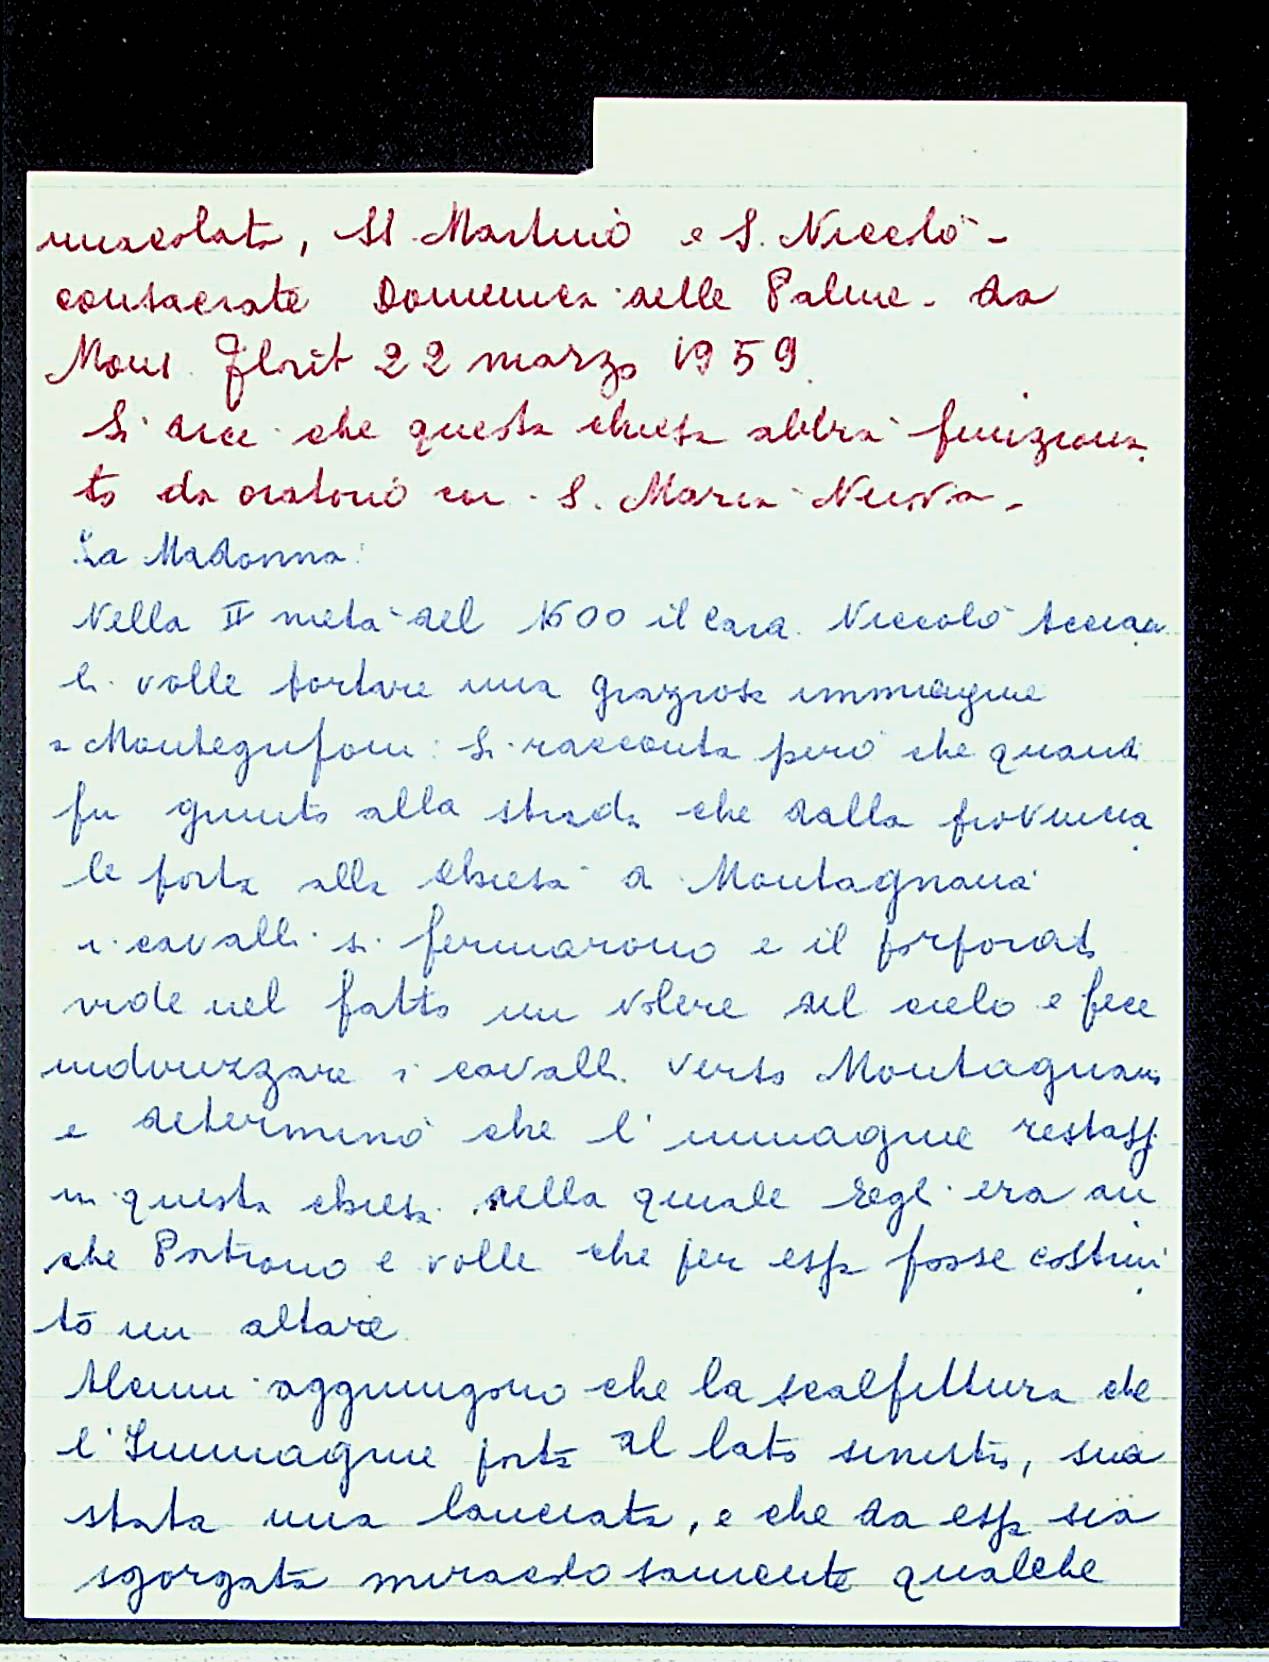 macolata, SS. Martino e S. Niccolò -
consacrate Domenica delle Palme - da
Mons. Florit 22 marzo 1959.
Si dice che questa chiesa abbia funziona-
to da oratorio con S. Maria Nuova -
La Madonna:
Nella II metà del 1500 il Card. Niccolò Acciaiu
li volle portare una graziosa immagine
a Montegufoni: Si racconta però che quand
fu giunto alla strada che dalla provincia
le porta alla chiesa a Montagnana
i cavalli si fermarono e il porporato
vide nel fatto un volere del cielo e fece
indirizzare i cavalli verso Montagnana
e determinò che l'immagine restasse
in questa chiesa della quale Egli era an
che Patrono e volle che per essa fosse costrui
to un altare
Alcuni aggiungono che la scalfittura che
l'Immagine porta al lato sinistro, sia
stata una lanciata, e che da essa sia
sgorgata miracolosamente qualche